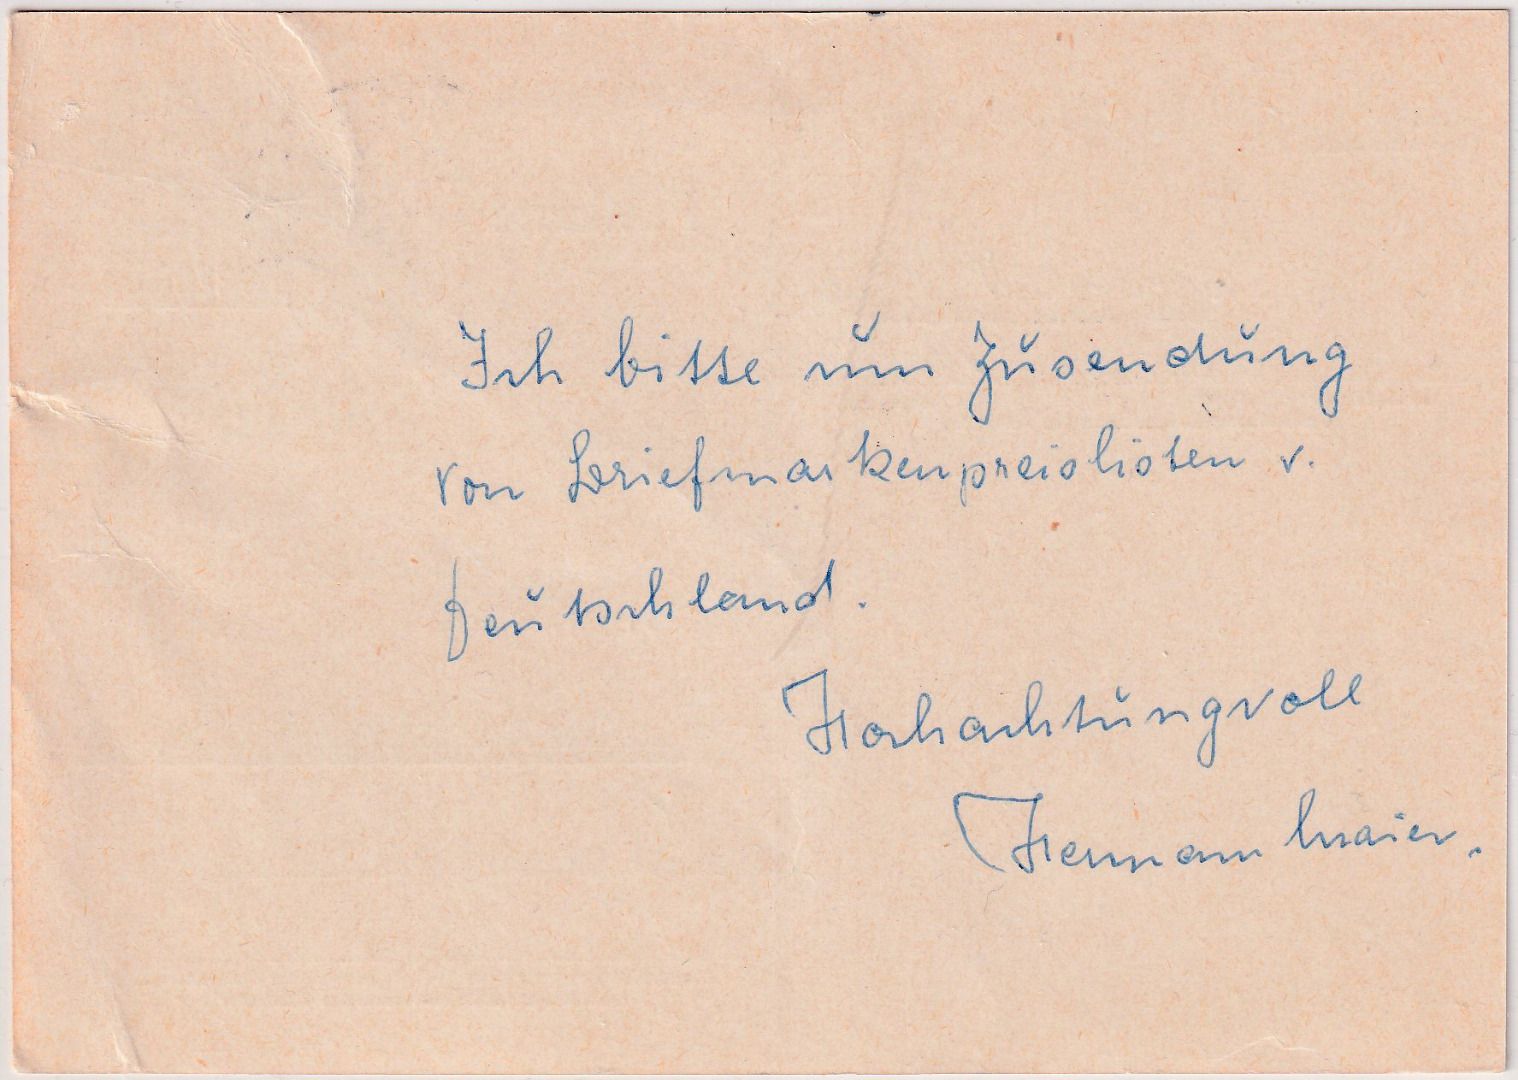 Ich bitte um Zusendung
von Briefmarkenpreislisten v.
Deutschland.
Hochachtungvoll
Hermann Maier.